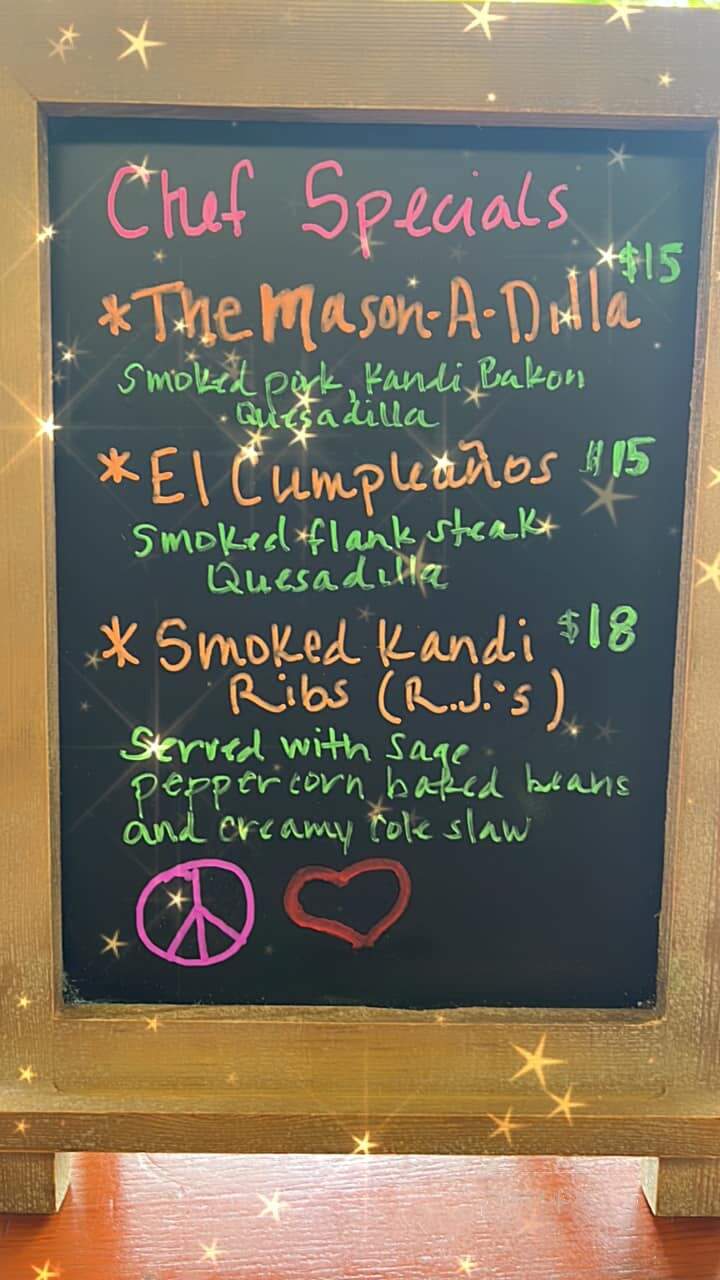 Chef Specials
$15
*The Mason-A-Dilla
Smoked pork, Kandi Bakon
Quesadilla
*El Cumpleaños $15
Smoked flank steak
Quesadilla
*Smoked Kandi $18
Ribs (R.J.'s)
Served with sage
peppercorn baked beans
and creamy cole slaw